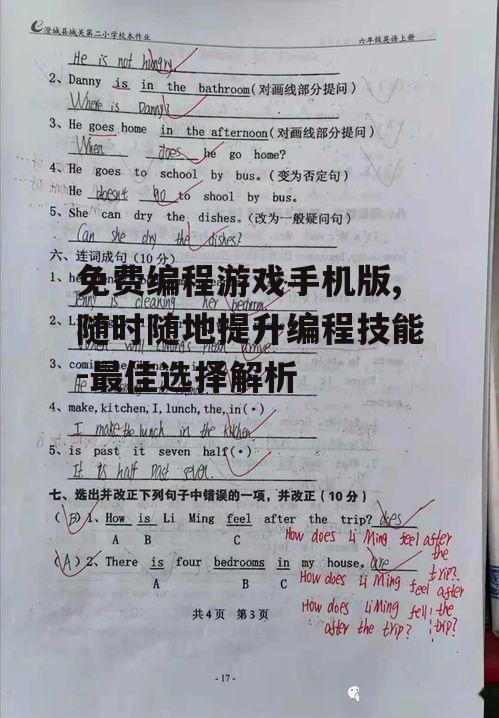 澄城县城关第二小学校本作业 六年级英语上册
He is not hungry
2、Danny is in the bathroom(对画线部分提问)
Where is Danny?
3、He goes home in the afternoon(对画线部分提问)
When does he go home?
4、He goes to school by bus.(变为否定句)
He doesn't go to shool by bus.
5、She can dry the dishes.(改为一般疑问句)
Can she dry the dishes?
六、连词成句(10分)
1、
is cleaning her bedroom.
免费编程游戏手机版,
2、
随时随地提升编程技能
3、
-最佳选择解析
4、make,kitchen,I,lunch,the,in(·)
I make the lunch in the kitchen
5、is past it seven half(·)
It is half past seven.
七、选出并改正下列句子中错误的一项,并改正(10分)
(B)1、How is Li Ming feel after the trip? does
A B C
How does Li Ming feel after the trip?
(A)2、There is four bedrooms in my house. are
A B C
How does Li Ming feel after
How does LiMing fell the
after the trip? trip?
共4页 第3页
-17-